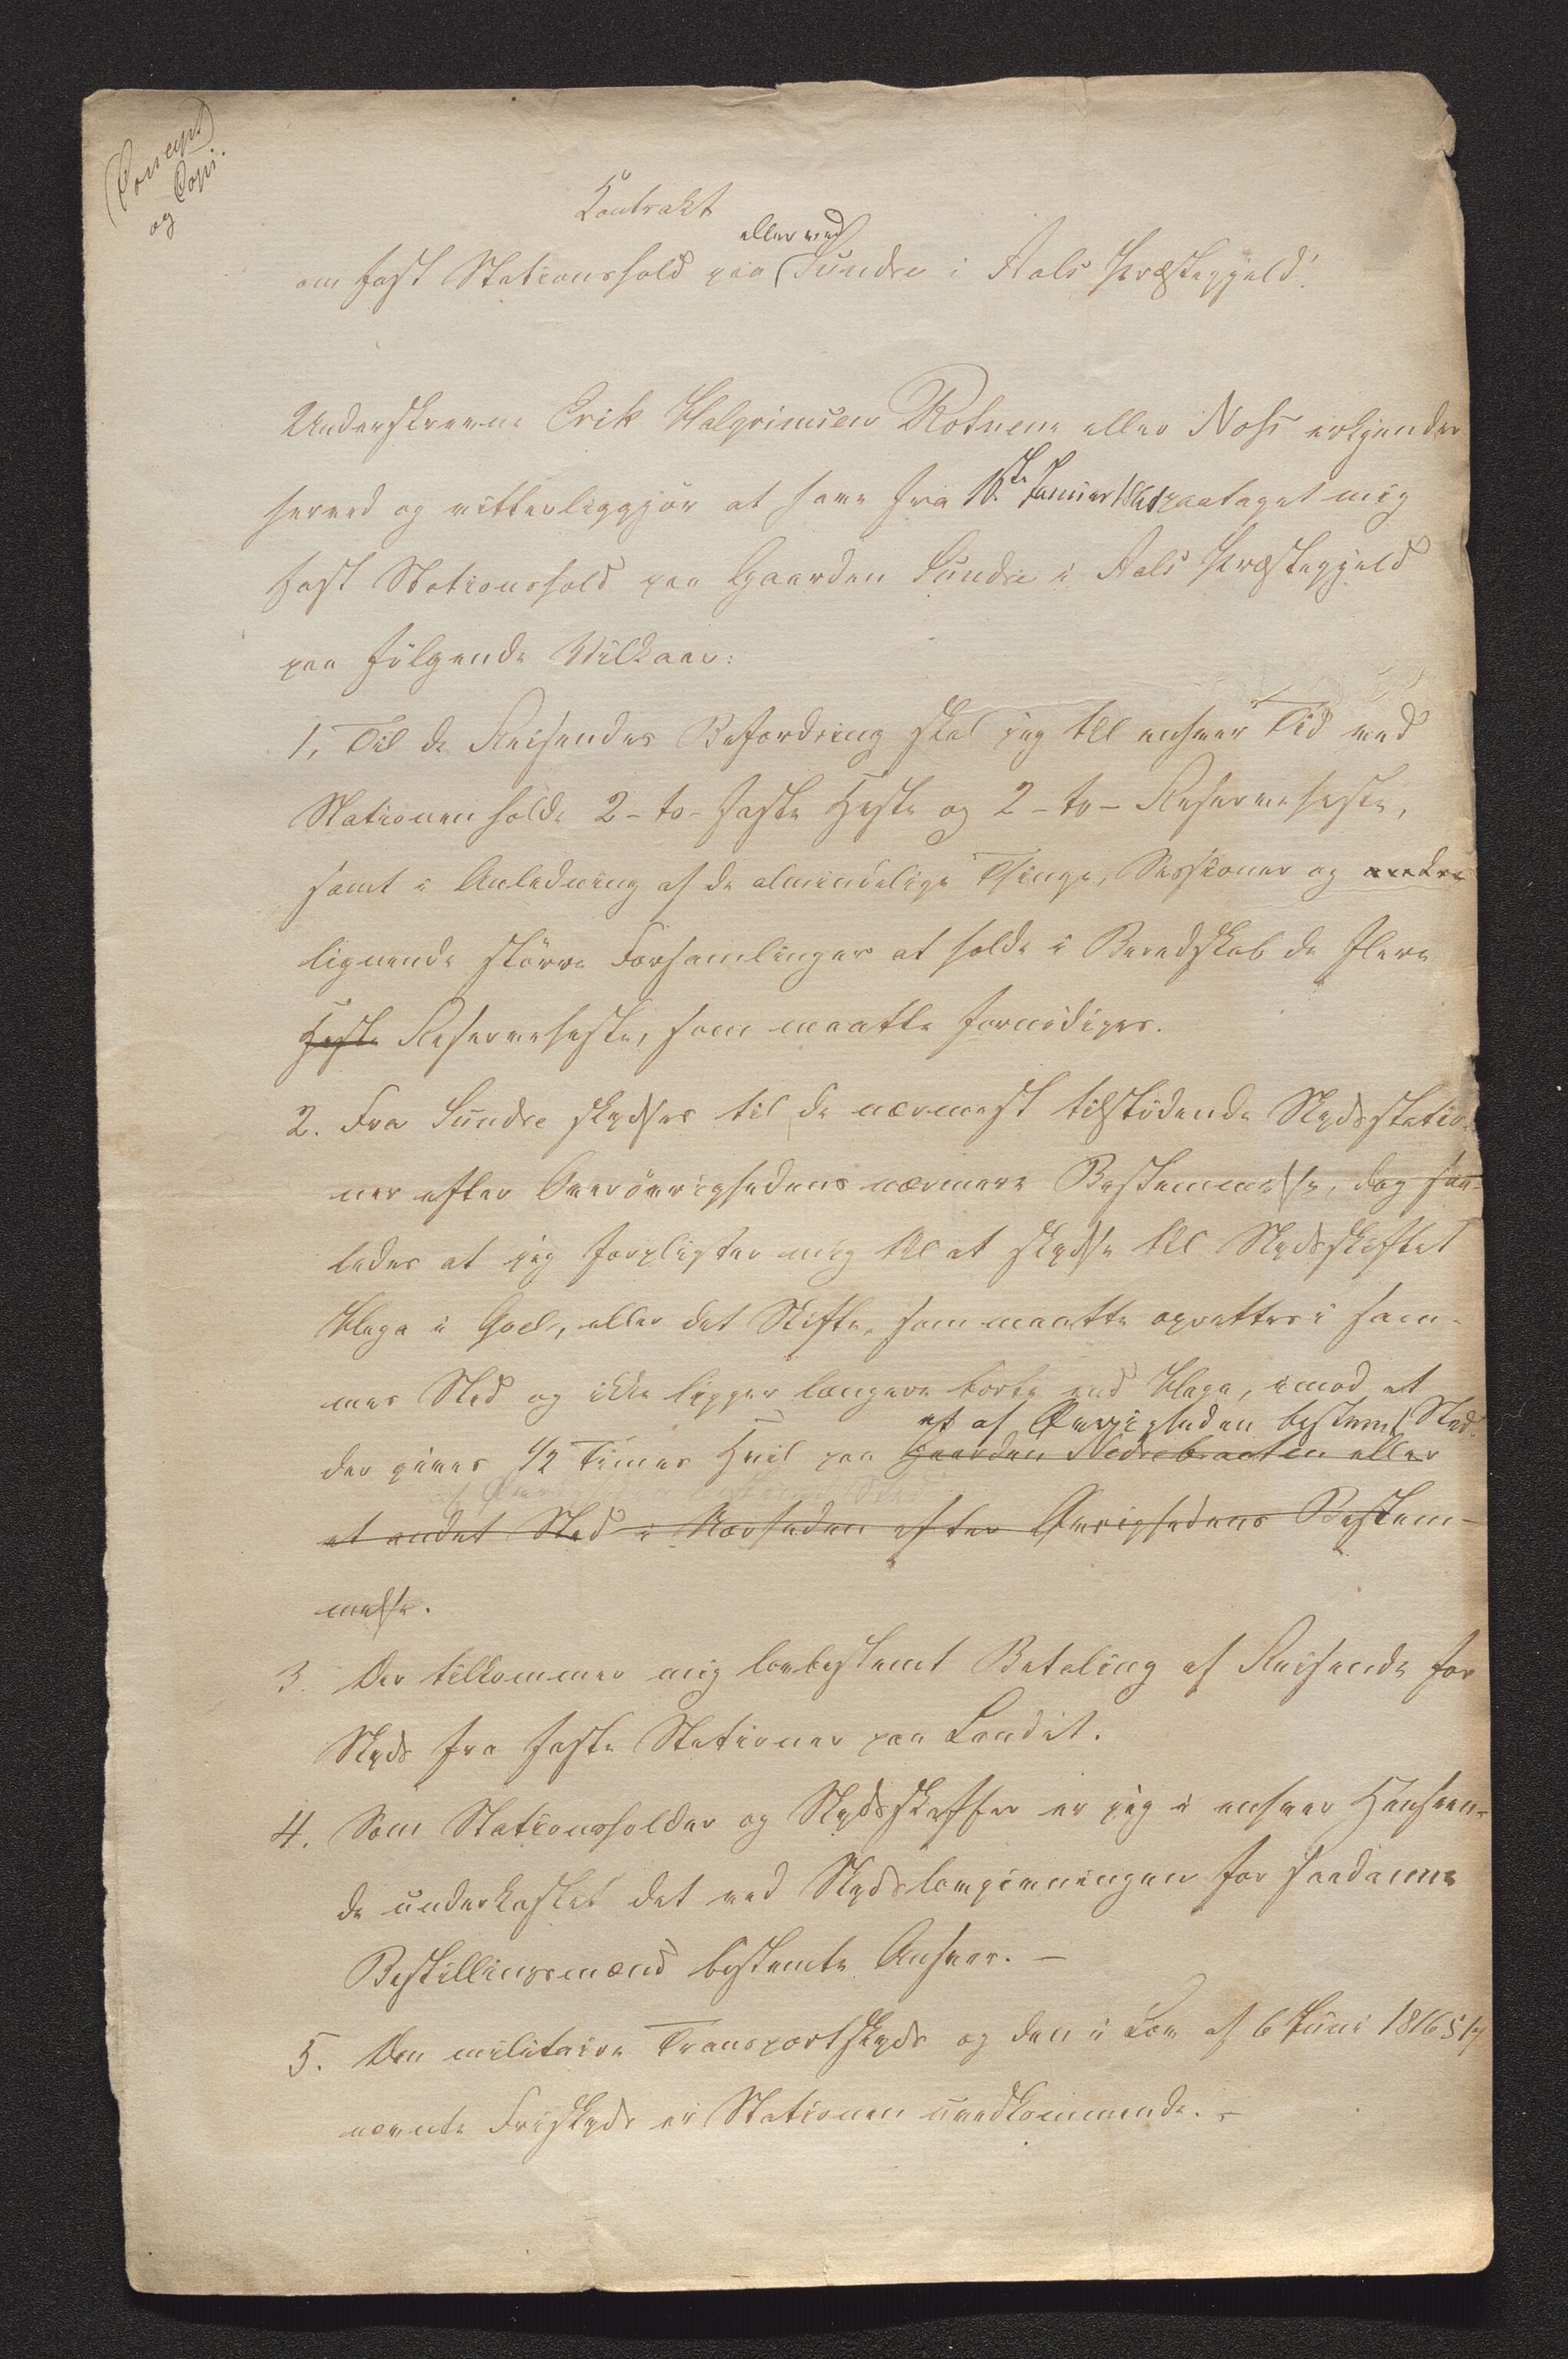 (Concept
og Copi.
Kontrakt
eller ved
om fast Stationshold paa Sundre i Aals Præstegjeld.
Underskrevne Erik Halgrimsen Rotneme eller Nohs erkjender
herved og vitterliggjør at have fra 1ste Januar paataget mig
fast Stationshold paa Gaarden Sundre i Aals Præstegjeld
paa følgende Vilkaar:
1, Til de Reisendes Befordring skal jeg til enhver Tid ved
Stationen holde 2 - to - faste Heste og 2 - to - Reserveheste,
samt i Anledning af de almindelige Thinge, Sessioner og andre
lignende større Forsamlinger at holde i Beredskab de flere
Heste Reserveheste, som maatte fornødiges.
2. Fra Sundre skydses til de nærmest tilstødende Skydsstatio-
ner efter Overøvrighedens nærmere Bestemmelse, dog saa-
ledes at jeg forpligter mig til at skydse til Skydsskiftet
Haga i Gol, eller det Skifte, som maatte oprettes i sam-
mes Sted og ikke ligger længere borte end Haga, imod at
et af Øvrigheden bestemt Sted.
der gives 1/2 Times Hvil paa Gaarden Nedrebraaten eller
et andet Sted i Nærheden efter Øvrighedens Bestem-
melse.
3. Der tilkommer mig lovbestemt Betaling af Reisende for
Skyds fra faste Stationer paa Landet.
4. Som Stationsholder og Skydsskaffer er jeg i enhver Henseen-
de underkastet det ved Skydslovgivningen for saadanne
Bestillingsmænd bestemte Ansvar. —
5. Den militaire Transportskyds og den i Lov af 6 Juni 1816 § 17
nævnte Friskyds er Stationen uvedkommende. -